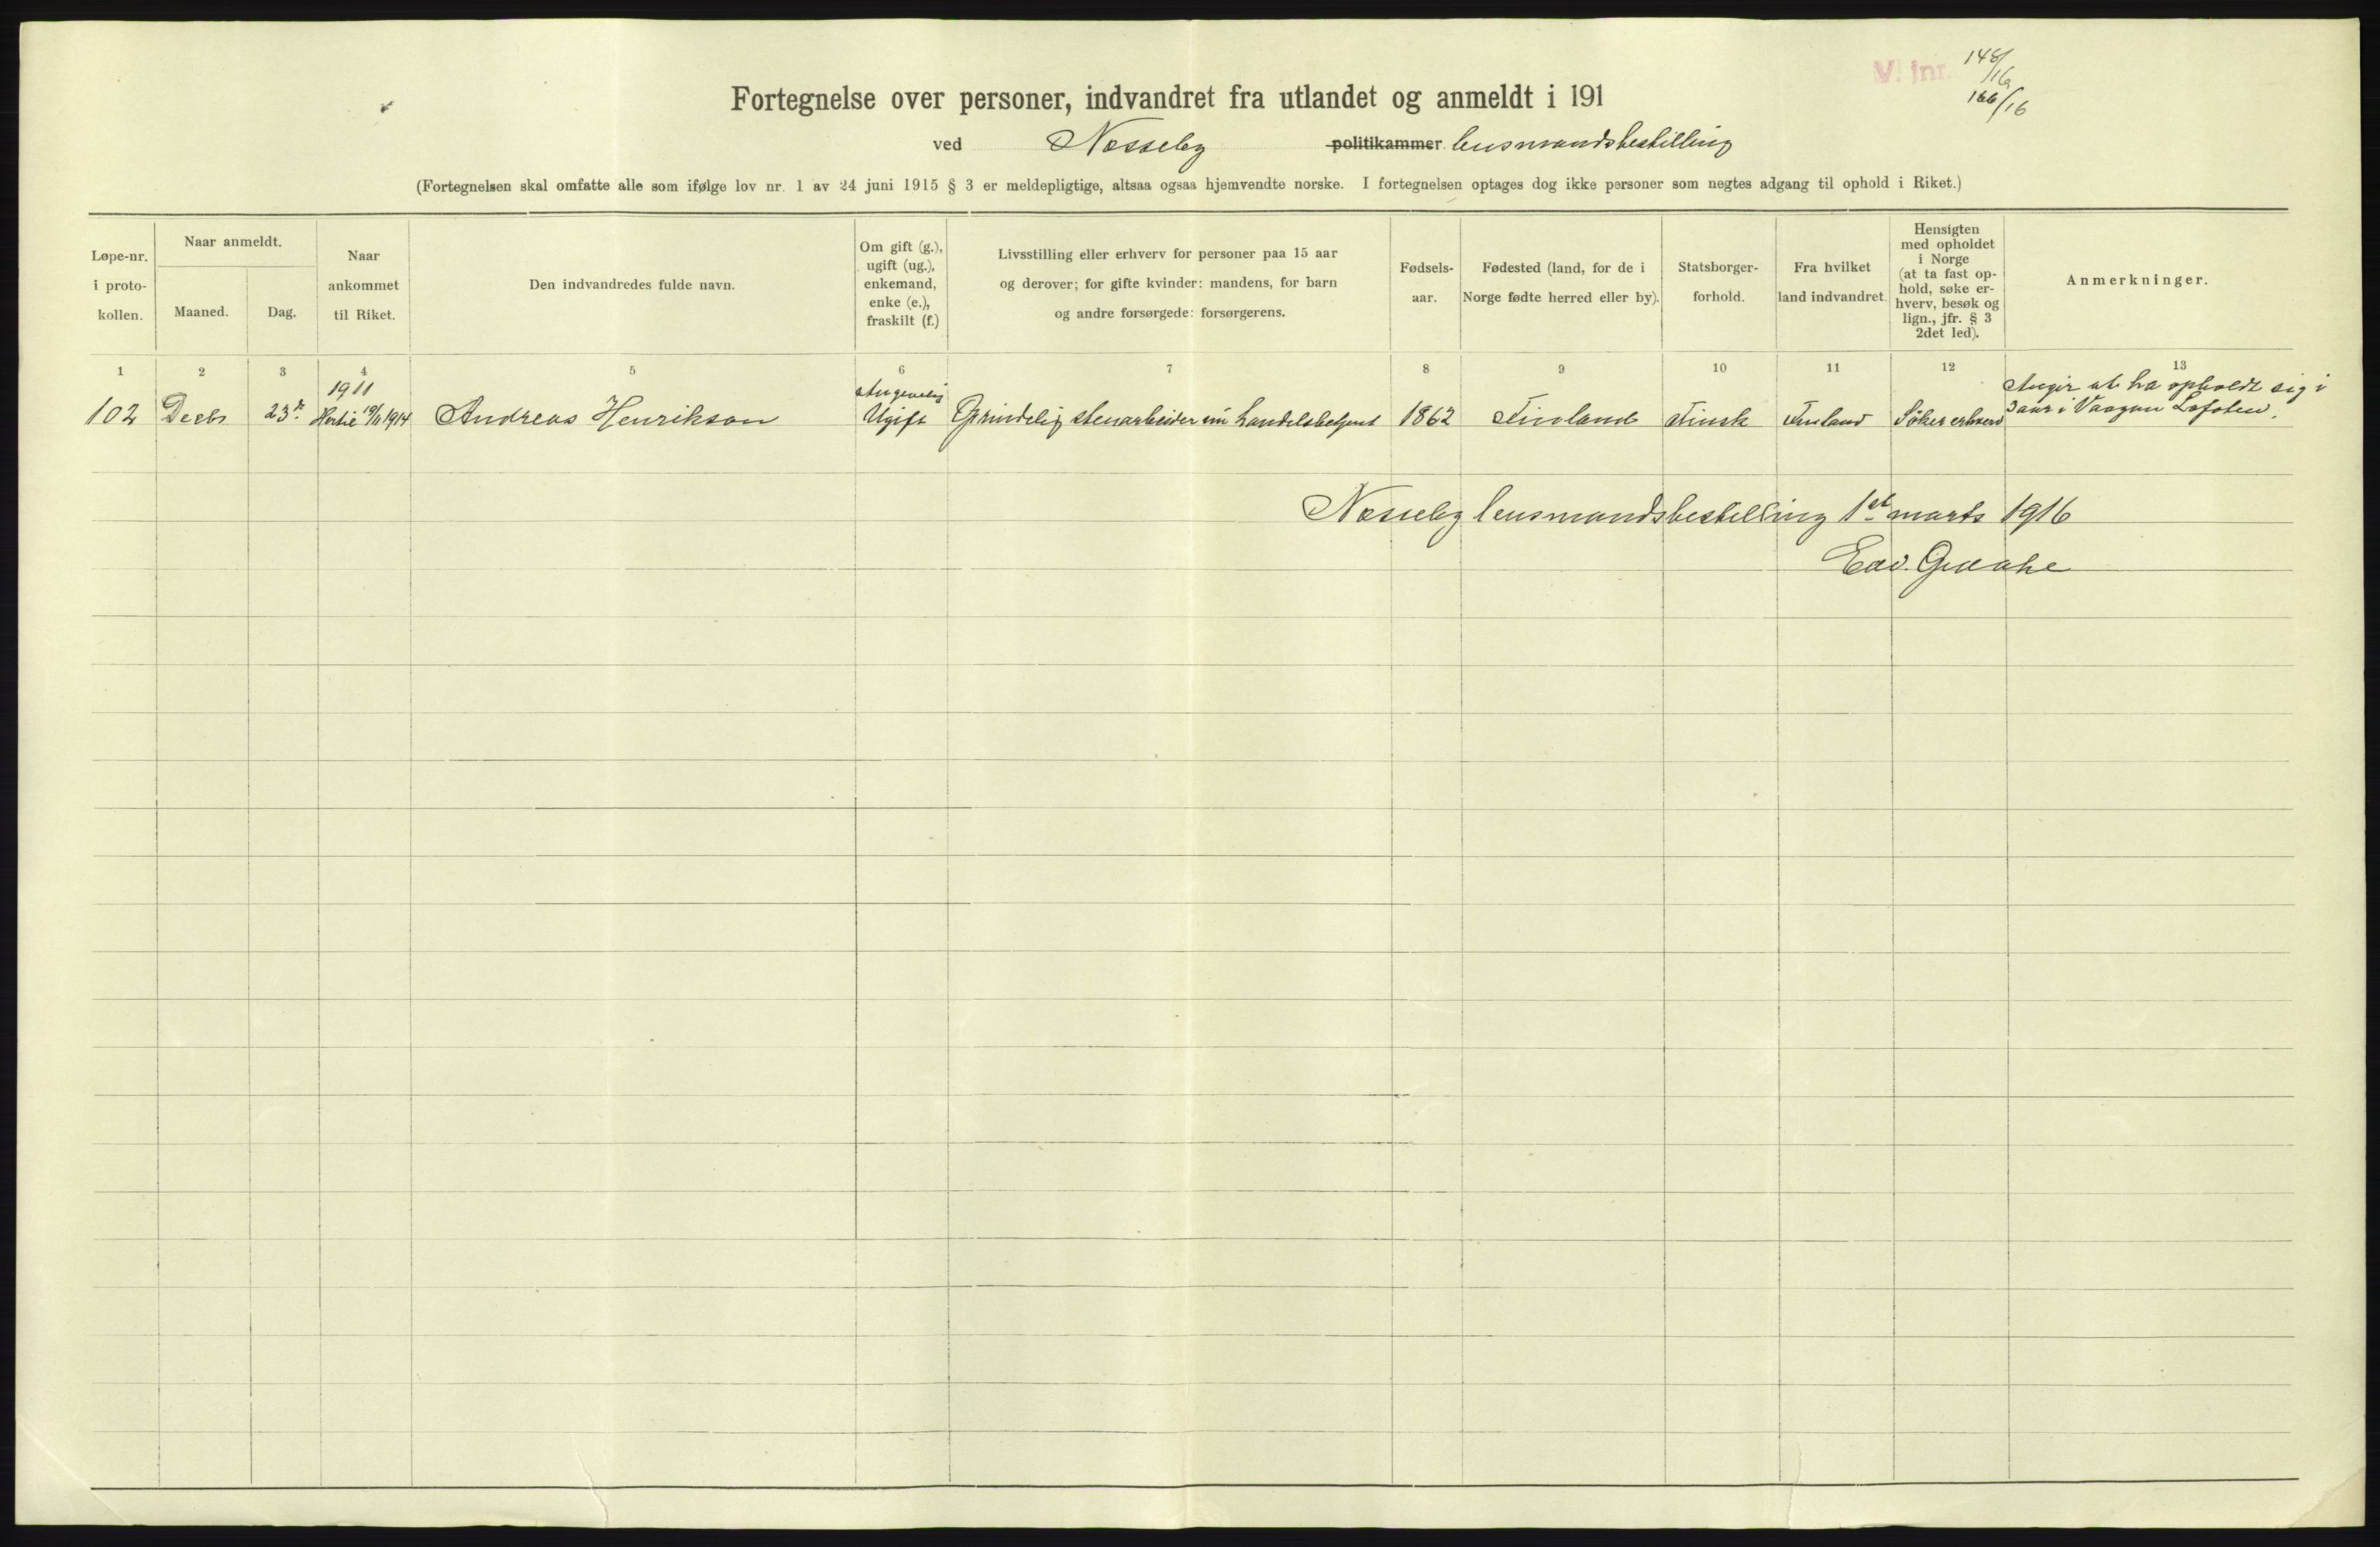 V. Jnr. 148/16
166/16
Fortegnelse over personer, indvandret fra utlandet og anmeldt i 191
ved Nesseby politikammer lensmandsbestilling
(Fortegnelsen skal omfatte alle som ifølge lov nr. 1 av 24 juni 1915 § 3 er meldepligtige, altsaa ogsaa hjemvendte norske. I fortegnelsen optages dog ikke personer som negtes adgang til ophold i Riket.)
Løpe-nr.
i proto-
kollen.
Naar anmeldt.
Maaned.
Dag.
Naar
ankommet
til Riket.
Den indvandredes fulde navn.
Om gift (g.),
ugift (ug.),
enkemand,
enke (e.),
fraskilt (f.)
Livsstilling eller erhverv for personer paa 15 aar
og derover; for gifte kvinder: mandens, for barn
og andre forsørgede: forsørgerens.
Fødsels-
aar.
Fødested (land, for de i
Norge fødte herred eller by).
Statsborger-
forhold.
Fra hvilket
land indvandret.
Hensigten
med opholdet
i Norge
(at ta fast op-
hold, søke er-
hverv, besøk og
lign., jfr. § 3
2det led).
Anmerkninger.
1 2 3 4 5 6 7 8 9 10 11 12 13
1911 Angivelig Angir at ha opholdt sig i
102 Decbr 23d Hertil 19/11 1914 Andreas Henrikson Ugift Oprindelig stenarbeider nu handelsbetjent 1862 Finland Finsk Finland Söker erhverv 3 aar i Vaagan Lofoten.
Nesseby lensmandsbestilling 1st marts 1916
Edv.